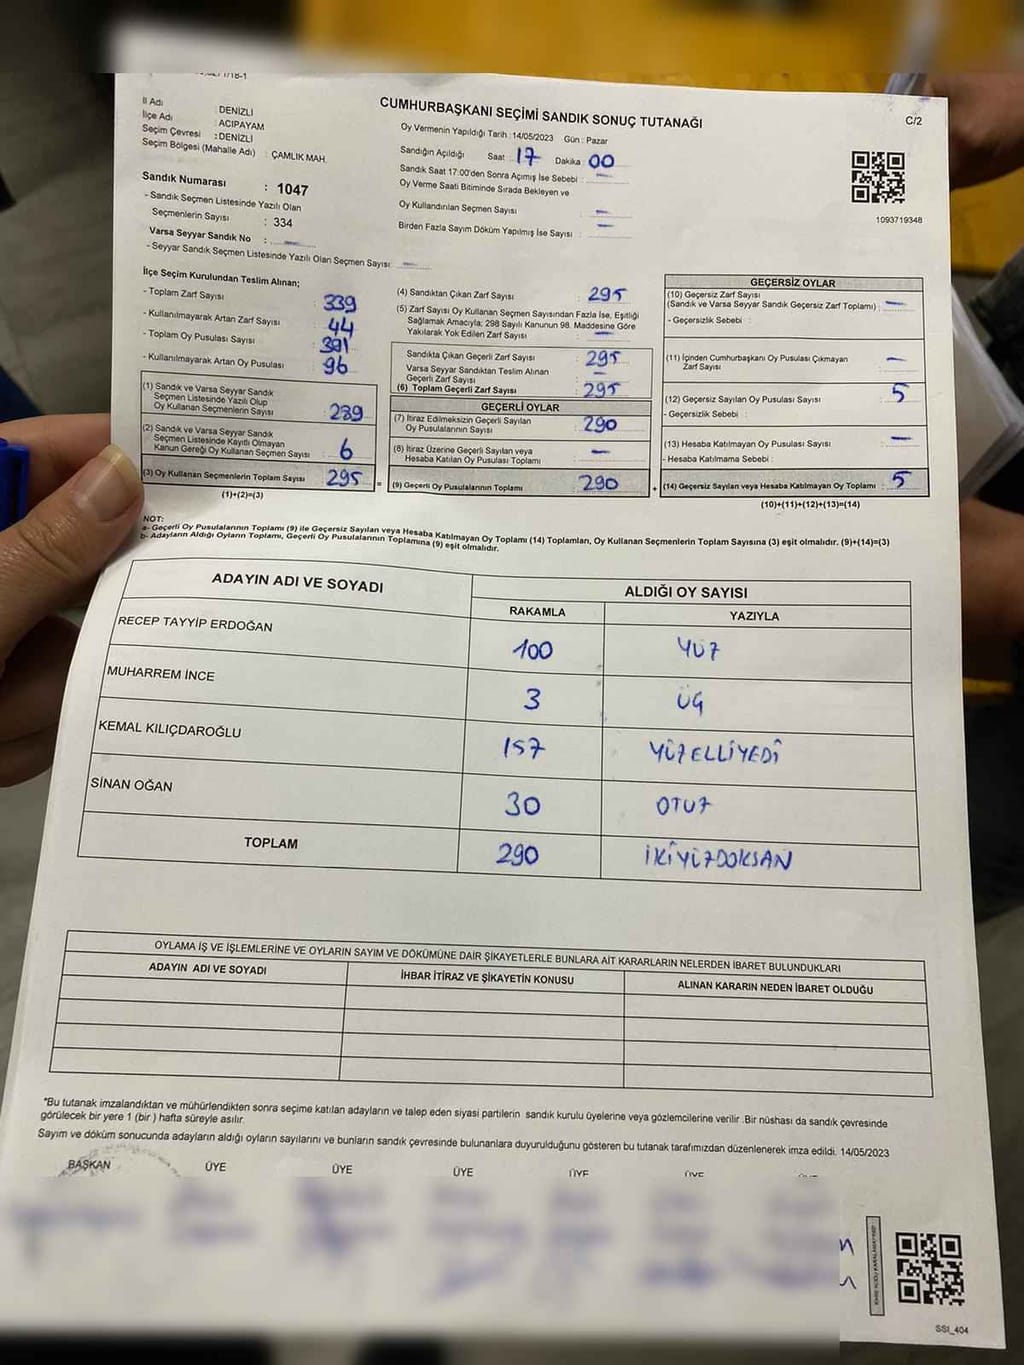 CUMHURBAŞKANI SEÇİMİ SANDIK SONUÇ TUTANAĞI
C/2
İl Adı : DENİZLİ
İlçe Adı : ACIPAYAM
Seçim Çevresi : DENİZLİ
Seçim Bölgesi (Mahalle Adı) : ÇAMLIK MAH.
Sandık Numarası : 1047
- Sandık Seçmen Listesinde Yazılı Olan
Seçmenlerin Sayısı : 334
Varsa Seyyar Sandık No :
- Seyyar Sandık Seçmen Listesinde Yazılı Olan Seçmen Sayısı:
Oy Vermenin Yapıldığı Tarih :14/05/2023 Gün : Pazar
Sandığın Açıldığı Saat : 17 Dakika : 00
Sandık Saat 17:00'den Sonra Açımış İse Sebebi : —
Oy Verme Saati Bitiminde Sırada Bekleyen ve
Oy Kullandırılan Seçmen Sayısı : —
Birden Fazla Sayım Döküm Yapılmış İse Sayısı : —
1093719348
İlçe Seçim Kurulundan Teslim Alınan;
- Toplam Zarf Sayısı : 339
- Kullanılmayarak Artan Zarf Sayısı : 44
- Toplam Oy Pusulası Sayısı : 391
- Kullanılmayarak Artan Oy Pusulası : 96
(1) Sandık ve Varsa Seyyar Sandık
Seçmen Listesinde Yazılı Olup
Oy Kullanan Seçmenlerin Sayısı : 289
(2) Sandık ve Varsa Seyyar Sandık
Seçmen Listesinde Kayıtlı Olmayan
Kanun Gereği Oy Kullanan Seçmen Sayısı : 6
(3) Oy Kullanan Seçmenlerin Toplam Sayısı : 295
(1)+(2)=(3)
(4) Sandıktan Çıkan Zarf Sayısı : 295
(5) Zarf Sayısı Oy Kullanan Seçmen Sayısından Fazla İse, Eşitliği
Sağlamak Amacıyla; 298 Sayılı Kanunun 98. Maddesine Göre
Yakılarak Yok Edilen Zarf Sayısı : —
Sandıkta Çıkan Geçerli Zarf Sayısı : 295
Varsa Seyyar Sandıktan Teslim Alınan
Geçerli Zarf Sayısı : —
(6) Toplam Geçerli Zarf Sayısı : 295
GEÇERLİ OYLAR
(7) İtiraz Edilmeksizin Geçerli Sayılan
Oy Pusulalarının Sayısı : 290
(8) İtiraz Üzerine Geçerli Sayılan veya
Hesaba Katılan Oy Pusulası Toplamı : —
(9) Geçerli Oy Pusulalarının Toplamı : 290
GEÇERSİZ OYLAR
(10) Geçersiz Zarf Sayısı
(Sandık ve Varsa Seyyar Sandık Geçersiz Zarf Toplamı) : —
- Geçersizlik Sebebi :
(11) İçinden Cumhurbaşkanı Oy Pusulası Çıkmayan
Zarf Sayısı : —
(12) Geçersiz Sayılan Oy Pusulası Sayısı : 5
- Geçersizlik Sebebi :
(13) Hesaba Katılmayan Oy Pusulası Sayısı : —
- Hesaba Katılmama Sebebi :
(14) Geçersiz Sayılan veya Hesaba Katılmayan Oy Toplamı : 5
(10)+(11)+(12)+(13)=(14)
NOT:
a- Geçerli Oy Pusulalarının Toplamı (9) ile Geçersiz Sayılan veya Hesaba Katılmayan Oy Toplamı (14) Toplamları, Oy Kullanan Seçmenlerin Toplam Sayısına (3) eşit olmalıdır. (9)+(14)=(3)
b- Adayların Aldığı Oyların Toplamı, Geçerli Oy Pusulalarının Toplamına (9) eşit olmalıdır.
ADAYIN ADI VE SOYADI ALDIĞI OY SAYISI
RAKAMLA YAZIYLA
RECEP TAYYİP ERDOĞAN 100 YÜZ
MUHARREM İNCE 3 ÜÇ
KEMAL KILIÇDAROĞLU 157 YÜZELLİYEDİ
SİNAN OĞAN 30 OTUZ
TOPLAM 290 İKİYÜZDOKSAN
OYLAMA İŞ VE İŞLEMLERİNE VE OYLARIN SAYIM VE DÖKÜMÜNE DAİR ŞİKAYETLERLE BUNLARA AİT KARARLARIN NELERDEN İBARET BULUNDUKLARI
ADAYIN ADI VE SOYADI İHBAR İTİRAZ VE ŞİKAYETİN KONUSU ALINAN KARARIN NEDEN İBARET OLDUĞU
*Bu tutanak imzalandıktan ve mühürlendikten sonra seçime katılan adayların ve talep eden siyasi partilerin sandık kurulu üyelerine veya gözlemcilerine verilir .Bir nüshası da sandık çevresinde
görülecek bir yere 1 (bir ) hafta süreyle asılır.
Sayım ve döküm sonucunda adayların aldığı oyların sayılarını ve bunların sandık çevresinde bulunanlara duyurulduğunu gösteren bu tutanak tarafımızdan düzenlenerek imza edildi. 14/05/2023
BAŞKAN ÜYE ÜYE ÜYE ÜYE ÜYE
SSI_404